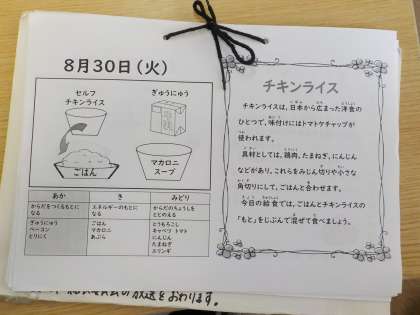 8月30日(火)
セルフ
チキンライス
ぎゅうにゅう
ごはん
マカロニ
スープ
あか
き
みどり
からだをつくるもとに
なる
エネルギーのもとに
なる
からだのちょうしを
ととのえる
ぎゅうにゅう
ベーコン
とりにく
ごはん
マカロニ
あぶら
とうもろこし
キャベツ トマト
にんじん
たまねぎ
エリンギ
チキンライス
チキンライスは、日本から広まった洋食の
ひとつで、味付けにはトマトケチャップが
使われます。
具材としては、鶏肉、たまねぎ、にんじん
などがあり、これらをみじん切りや小さな
角切りにして、ごはんと合わせます。
今日の給食では、ごはんとチキンライスの
「もと」をじぶんで混ぜて食べましょう。
の放送をおわります。